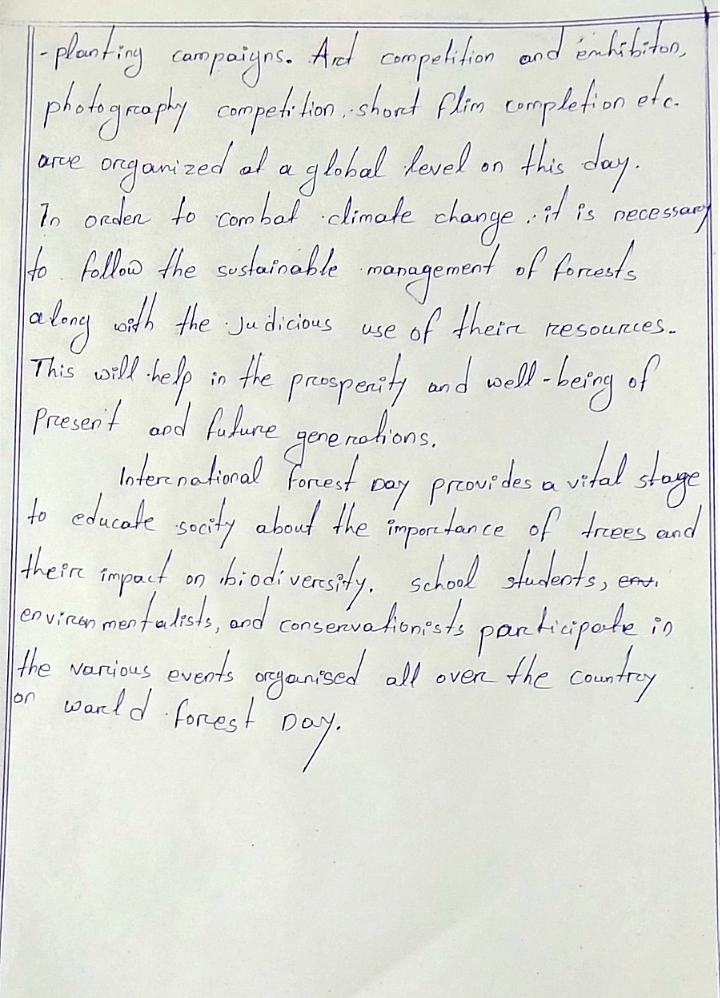 -planting campaigns. Art competition and exhibiton,
photography competition, short flim completion etc.
are organized at a global level on this day.
In order to combat climate change, it is necessary
to follow the sustainable management of forests
along with the judicious use of their resources.
This will help in the prosperity and well-being of
Present and future generations.
International forest Day provides a vital stage
to educate socity about the importance of trees and
their impact on biodiversity. school students,
environmentalists, and conservationists participate in
the various events organised all over the country
on warld forest Day.